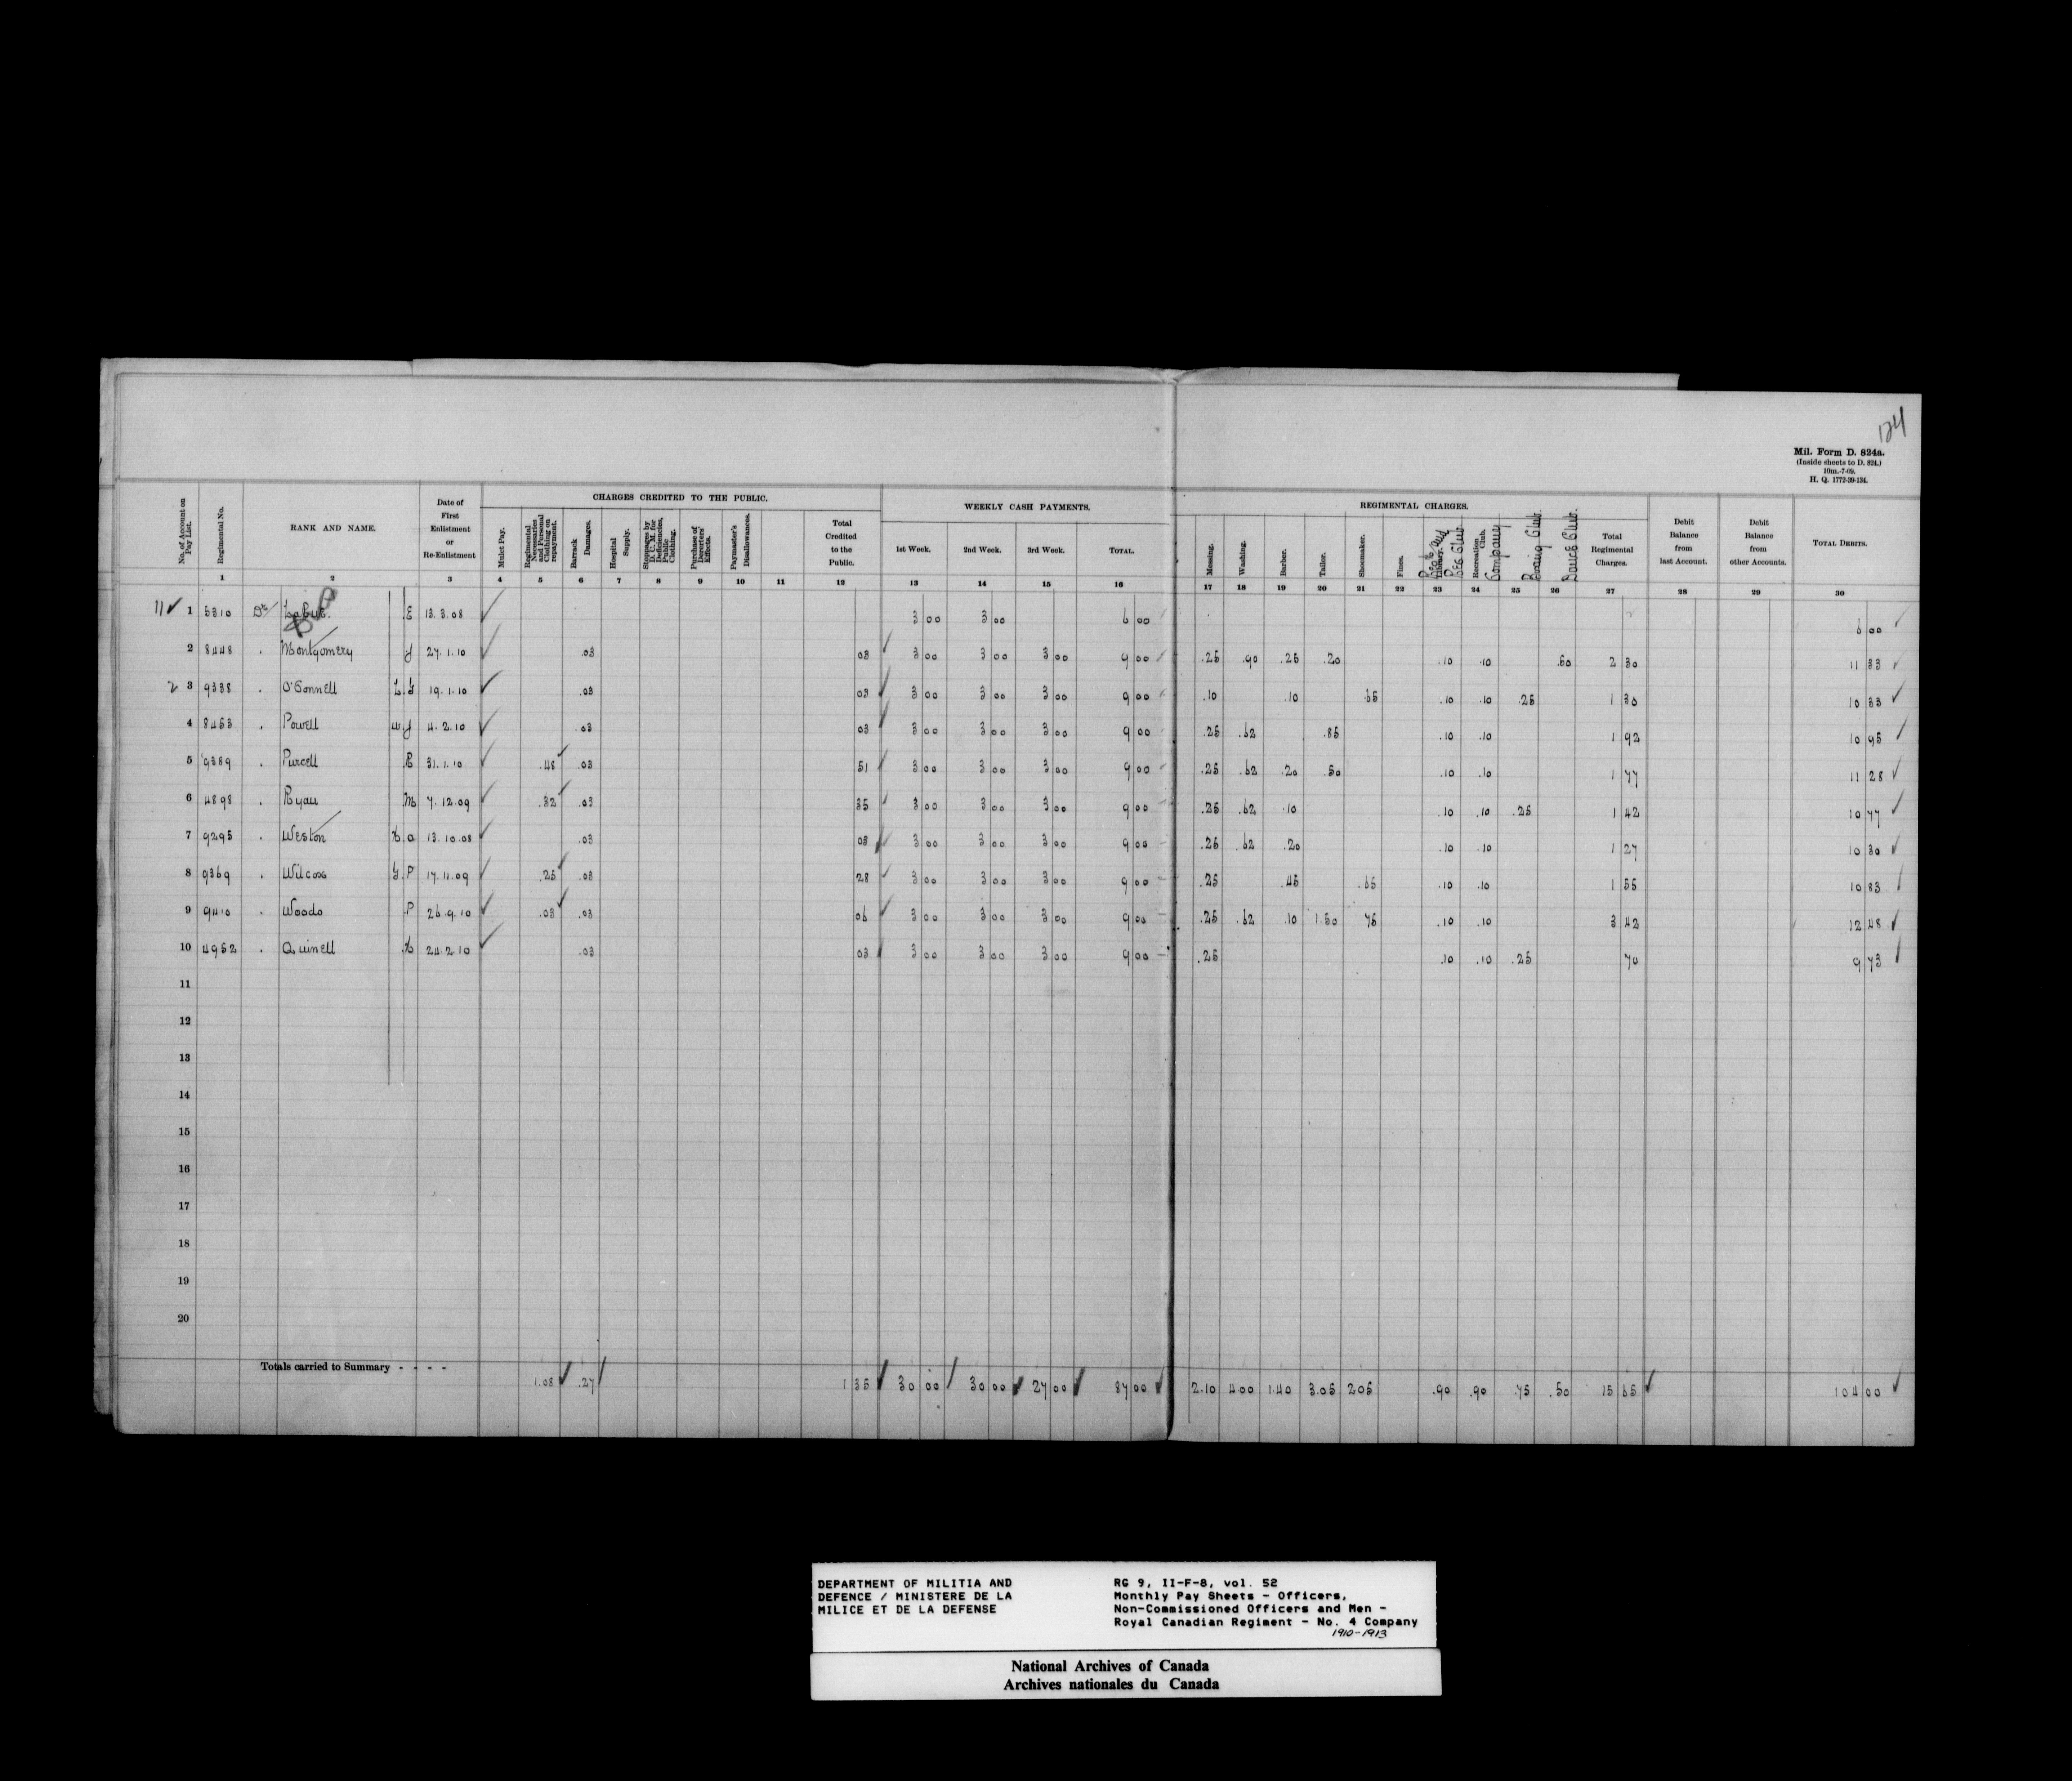 124
Mil. Form D. 824a.
(Inside sheets to D. 824.)
10m.-7-09.
H. Q. 1772-39-134.
CHARGES CREDITED TO THE PUBLIC. WEEKLY CASH PAYMENTS. REGIMENTAL CHARGES.
No. of Account on Pay List. Regimental No. RANK AND NAME. Date of First Enlistment or Re-Enlistment Mulct Pay. Regimental Necessaries and Personal Clothing on repayment. Barrack Damages. Hospital Supply. Stoppages by D. C. M. for Deficiencies, Public Clothing. Purchase of Deserters' Effects. Paymaster's Disallowances. Total Credited to the Public. 1st Week. 2nd Week. 3rd Week. TOTAL. Messing. Washing. Barber. Tailor. Shoemaker. Fines. Library. Rec Club Recreation Club. Company Boxing Club. Dance Club. Total Regimental Charges. Debit Balance from last Account. Debit Balance from other Accounts. TOTAL DEBITS.
1 2 3 4 5 6 7 8 9 10 11 12 13 14 15 16 17 18 19 20 21 22 23 24 25 26 27 28 29 30
11 ✓ 1 5310 E 13.3.08 ✓ 3 00 3 00 6 00 6 00 ✓
2 8448 . Montgomery J 27.1.10 ✓ .03 03 ✓ 3 00 3 00 3 00 9 00 .25 .90 .25 .20 .10 .10 .50 2 30 11 33 ✓
2 3 9338 . O'Connell L.G 19.1.10 ✓ .03 03 ✓ 3 00 3 00 3 00 9 00 .10 .10 .65 .10 .10 .25 1 30 10 33 ✓
4 8453 . Powell W.J 4.2.10 ✓ .03 03 ✓ 3 00 3 00 3 00 9 00 .25 .62 .85 .10 .10 1 92 10 95 ✓
5 9389 . Purcell .E 31.1.10 ✓ .48 ✓ .03 51 ✓ 3 00 3 00 3 00 9 00 .25 .62 .20 .50 .10 .10 1 77 11 28 ✓
6 4898 . Ryan .M 7.12.09 ✓ .32 ✓ .03 35 ✓ 3 00 3 00 3 00 9 00 .25 .62 .10 .10 .10 .25 1 42 10 77 ✓
7 9295 . Weston H.a 13.10.08 ✓ .03 03 ✓ 3 00 3 00 3 00 9 00 .25 .62 .20 .10 .10 1 27 10 30 ✓
8 9369 . Wilcox G.P 17.11.09 ✓ .25 ✓ .03 28 ✓ 3 00 3 00 3 00 9 00 .25 .45 .65 .10 .10 1 55 10 83 ✓
9 9410 . Woods .P 26.9.10 ✓ .03 ✓ .03 06 ✓ 3 00 3 00 3 00 9 00 .25 .62 .10 1.50 75 .10 .10 3 42 12 48 ✓
10 4952 . Quinell .H 24.2.10 ✓ .03 03 ✓ 3 00 3 00 3 00 9 00 .25 .10 .10 .25 70 9 73 ✓
11
12
13
14
15
16
17
18
19
20
Totals carried to Summary - - - - 1.08 ✓ .27 ✓ 1 35 ✓ 30 00 ✓ 30 00 ✓ 27 00 ✓ 87 00 ✓ 2.10 4.00 1.40 3.05 2.05 .90 .90 .75 .50 15 65 ✓ 104 00 ✓
DEPARTMENT OF MILITIA AND
DEFENCE / MINISTERE DE LA
MILICE ET DE LA DEFENSE
RG 9, II-F-8, vol. 52
Monthly Pay Sheets - Officers,
Non-Commissioned Officers and Men -
Royal Canadian Regiment - No. 4 Company
1910-1913
National Archives of Canada
Archives nationales du Canada